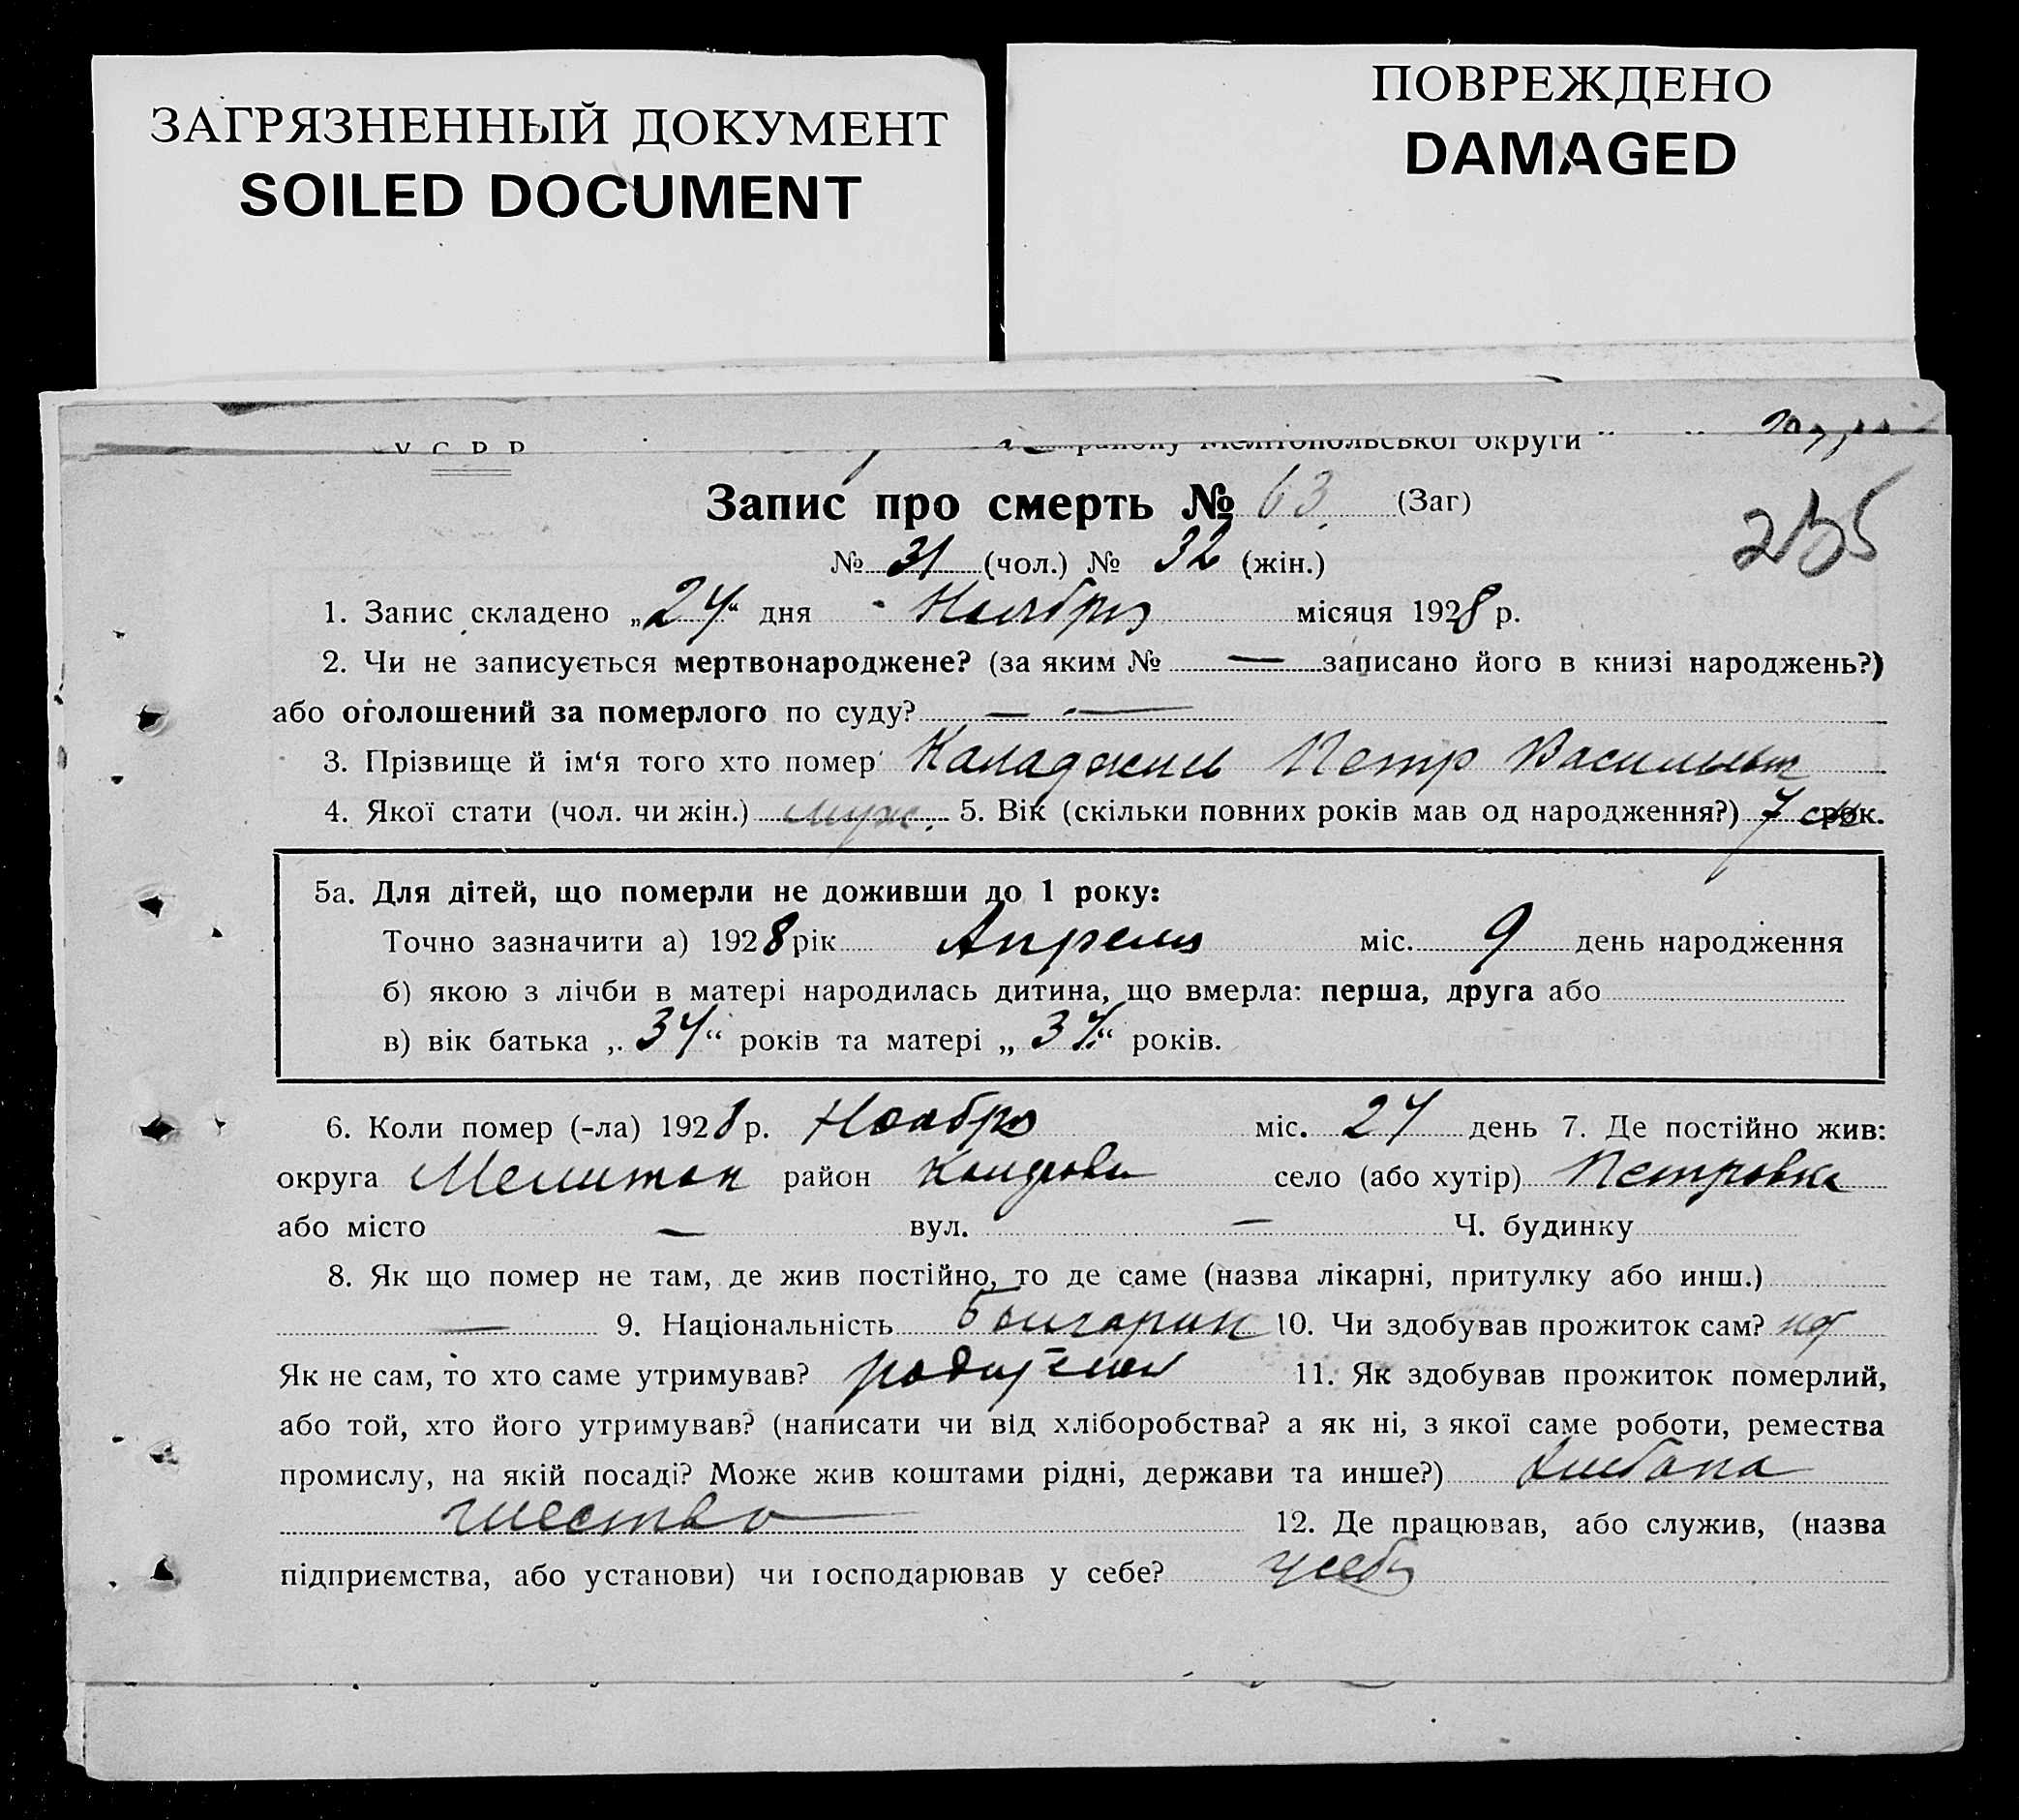 ЗАГРЯЗНЕННЫЙ ДОКУМЕНТ
SOILED DOCUMENT
ПОВРЕЖДЕНО
DAMAGED
У С Р Р району Мелітопольської округи
Запис про смерть № 63 (Заг)
235
№ 31 (чол.) № 32 (жін.)
1. Запис складено „24“ дня Ноября місяця 1928 р.
2. Чи не записується мертвонароджене? (за яким № — записано його в книзі народжень?)
або оголошений за померлого по суду? — —
3. Прізвище й ім‘я того хто помер Каладжин Петр Васильевич
4. Якої стати (чол. чи жін.) муж. 5. Вік (скільки повних років мав од народження?) 7 рок.
5а. Для дітей, що померли не доживши до 1 року:
Точно зазначити а) 1928 рік Апреля міс. 9 день народження
б) якою з лічби в матері народилась дитина, що вмерла: перша, друга або
в) вік батька „34“ років та матері „37“ років.
6. Коли помер (-ла) 1928 р. Ноября міс. 24 день 7. Де постійно жив:
округа Мелитоп район село (або хутір) Петровка
або місто — вул. — Ч. будинку
8. Як що помер не там, де жив постійно, то де саме (назва лікарні, притулку або инш.)
— 9. Національність Болгарин 10. Чи здобував прожиток сам? нет
Як не сам, то хто саме утримував? родители 11. Як здобував прожиток померлий,
або той, хто його утримував? (написати чи від хліборобства? а як ні, з якої саме роботи, ремества
промислу, на якій посаді? Може жив коштами рідні, держави та инше?) Хлебопа
шество 12. Де працював, або служив, (назва
підприємства, або установи) чи господарював у себе? у себя